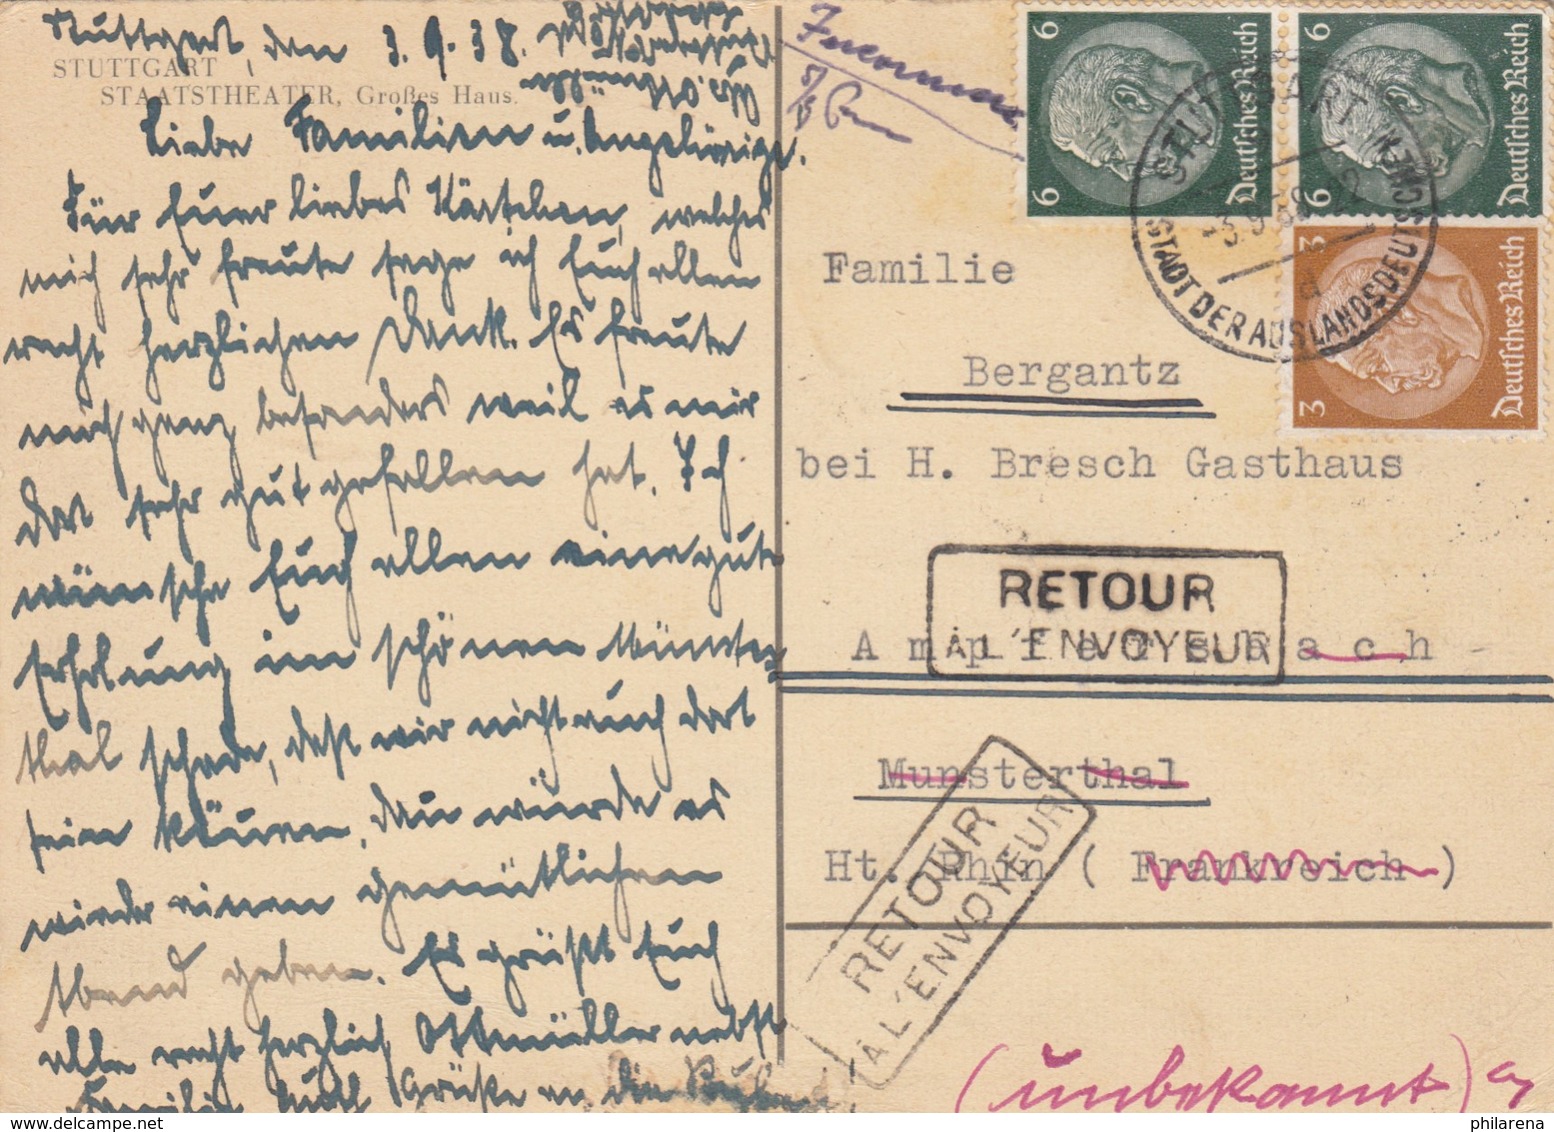 Stuttgart, den 3.9.38.
STUTTGART
STAATSTHEATER, Großes Haus.
Liebe Familien u. Angehörige.
Für Euer liebes Kärtchen, welches
mich sehr freute sage ich Euch allen
recht herzlichen Dank. Es freute
mich ganz besonders weil es mir
dort sehr gut gefallen hat. Ich
wünsche Euch allen eine gute
Erholung im schönen Münster
thal schade, daß wir nicht auch dort
sein können, dan würde es
wieder einen gemütlichen
Abend geben. Es grüßt Euch
alle recht herzlich Ottmüller nebst
Familie Grüße an die
Inconnu
6
Deutsches Reich
6
6
Deutsches Reich
6
3
Deutsches Reich
3
STUTTGART
STADT DER AUSLANDSDEUTSCHEN
Familie
Bergantz
bei H. Bresch Gasthaus
RETOUR
À L'ENVOYEUR
Ampfersbach
Munsterthal
Ht. Rhin (Frankreich)
RETOUR
À L'ENVOYEUR
(unbekannt)
philarena